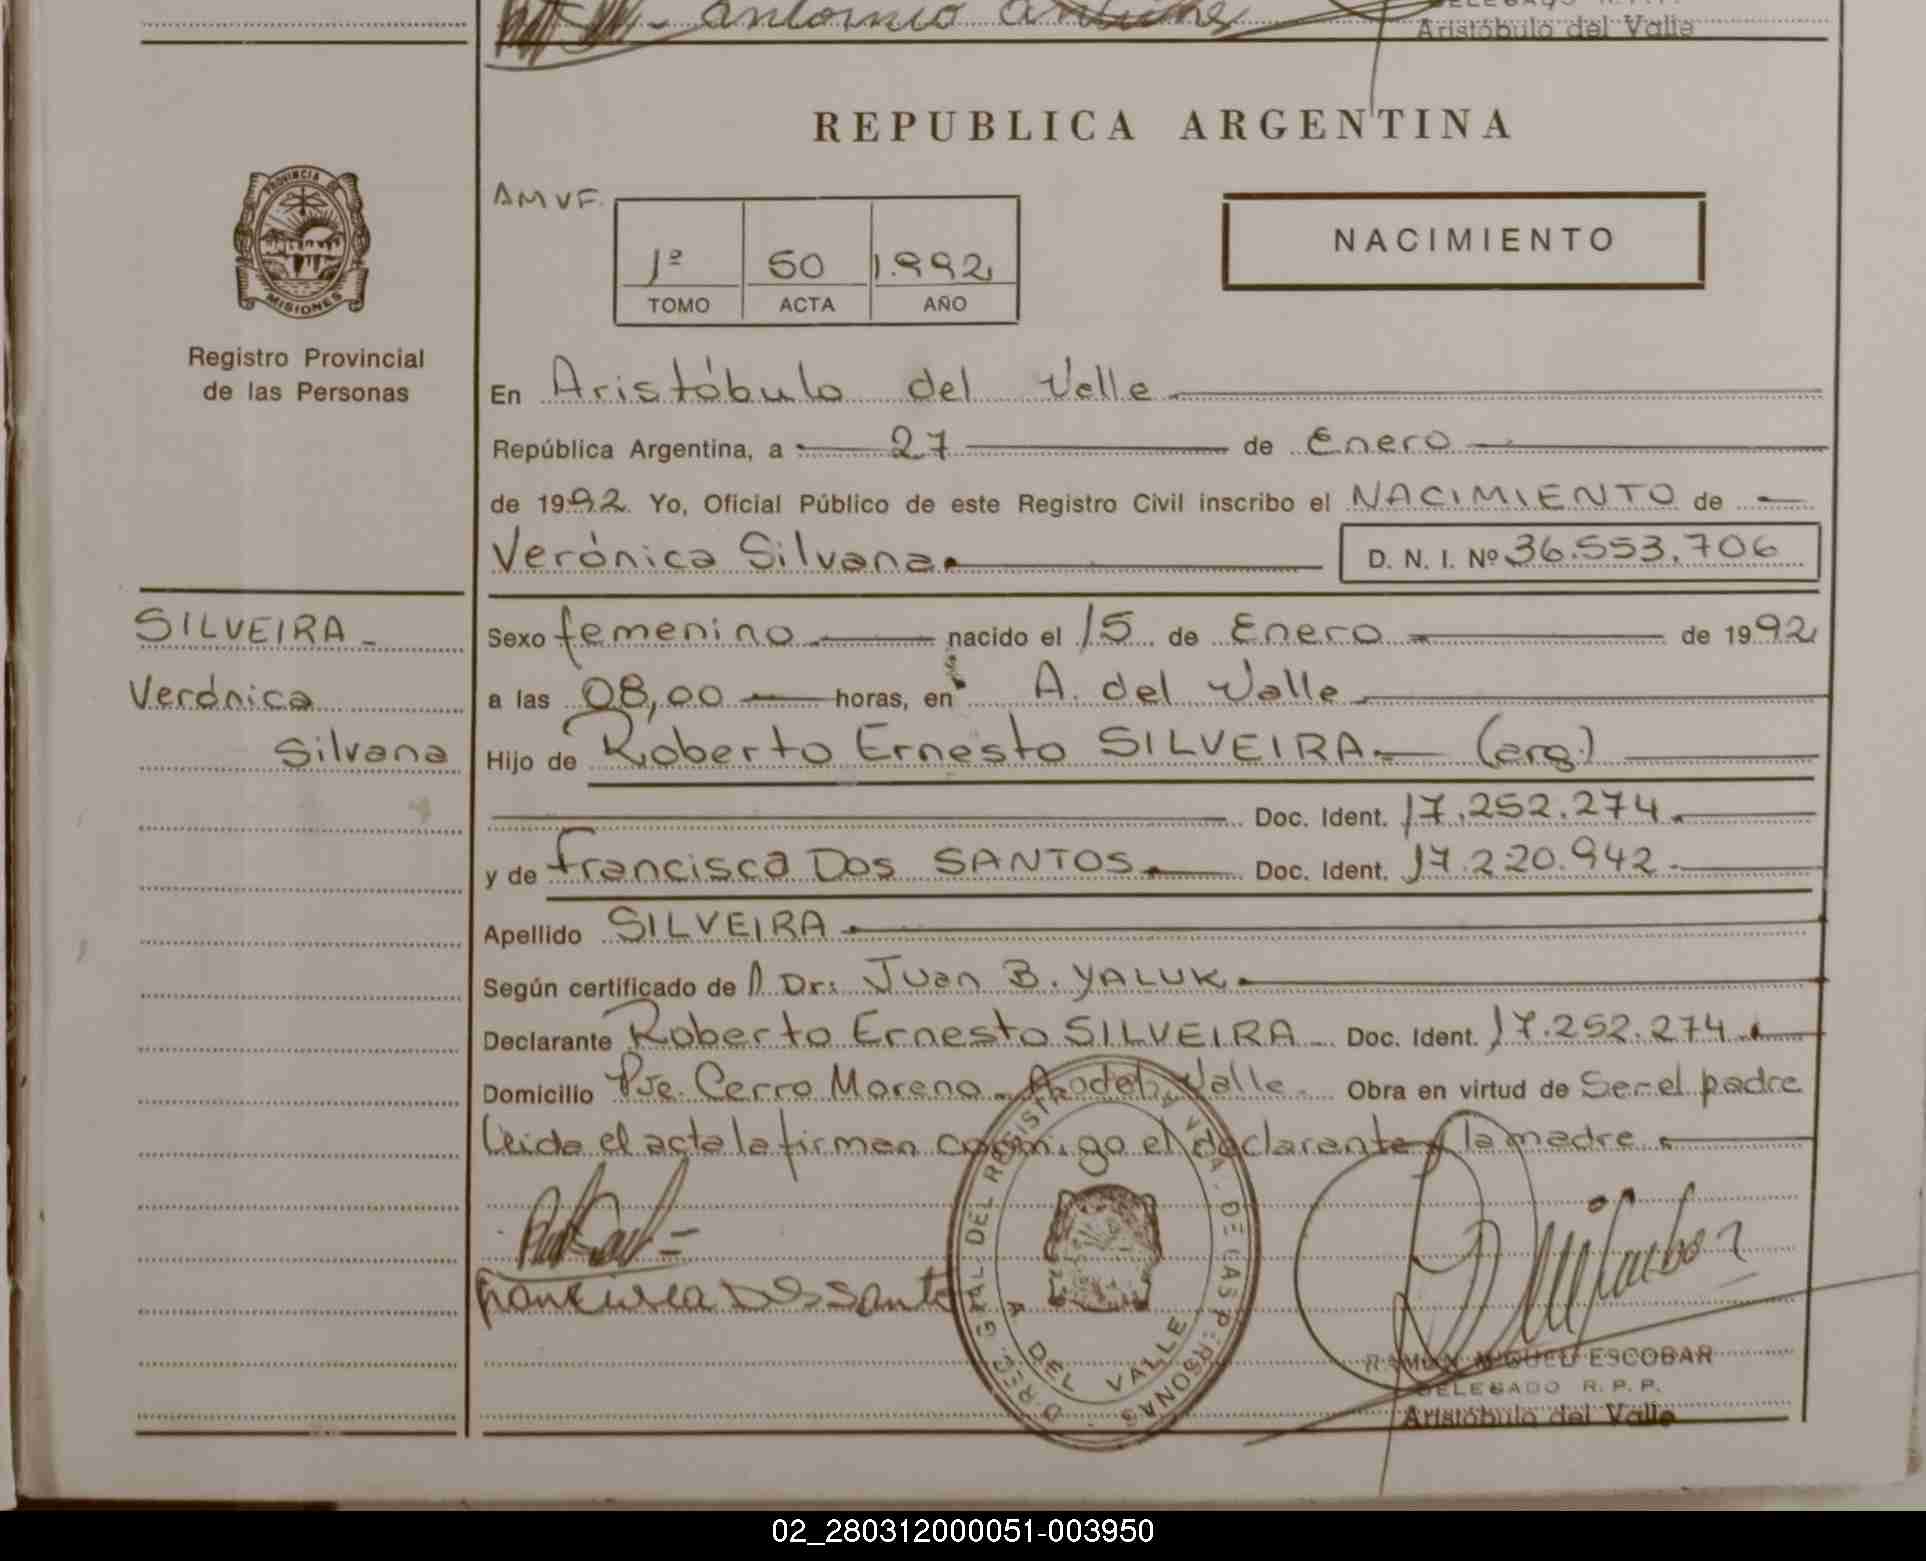 Antonio
DELEGADO R.P.P.
Aristóbulo del Valle
REPUBLICA ARGENTINA
PROVINCIA DE
MISIONES
Registro Provincial
de las Personas
AMVF.
1º 50 1.992
TOMO ACTA AÑO
NACIMIENTO
En Aristóbulo del Valle
República Argentina, a 27 de Enero
de 1992 Yo, Oficial Público de este Registro Civil inscribo el NACIMIENTO de
Verónica Silvana D. N. I. Nº 36.553.706
SILVEIRA
Verónica
Silvana
Sexo femenino nacido el 15 de Enero de 1992
a las 08,00 horas, en A. del Valle
Hijo de Roberto Ernesto SILVEIRA (arg.)
Doc. Ident. 17.252.274
y de Francisca Dos SANTOS Doc. Ident. 17.220.942
Apellido SILVEIRA
Según certificado de l Dr: Juan B. YALUK
Declarante Roberto Ernesto SILVEIRA Doc. Ident. 17.252.274
Domicilio Pje. Cerro Moreno - A. del Valle. Obra en virtud de Ser el padre
Leida el acta la firman conmigo el declarante y la madre
Francisca Dos Santo
DIREC. GRAL DEL REGISTRO DE LAS PERSONAS
A DEL VALLE
RAMON MIGUEL ESCOBAR
DELEGADO R. P. P.
Aristóbulo del Valle
02_280312000051-003950